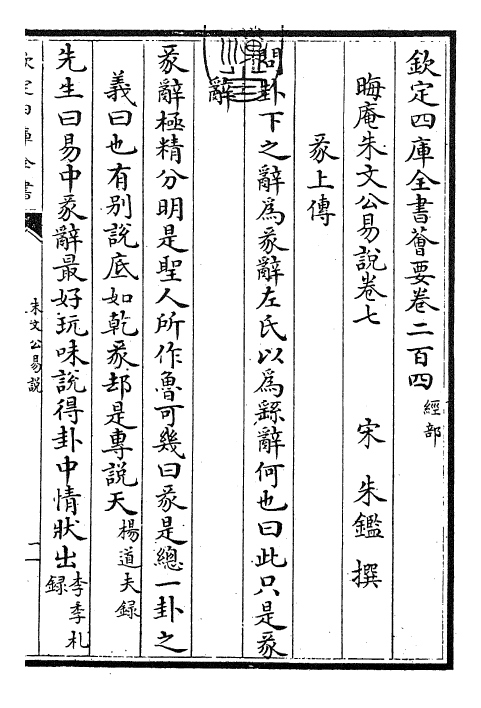 欽定四庫全書薈要卷二百四 經部
晦庵朱文公易說卷七
宋 朱鑑 撰
彖上傳
問卦下之辭為彖辭左氏以為繇辭何也曰此只是彖
辭
彖辭極精分明是聖人所作魯可幾曰彖是總一卦之
義曰也有別說底如乾彖却是專說天 楊道夫錄
先生曰易中彖辭最好玩味說得卦中情狀出 李季札錄
欽定四庫全書
朱文公易說
一